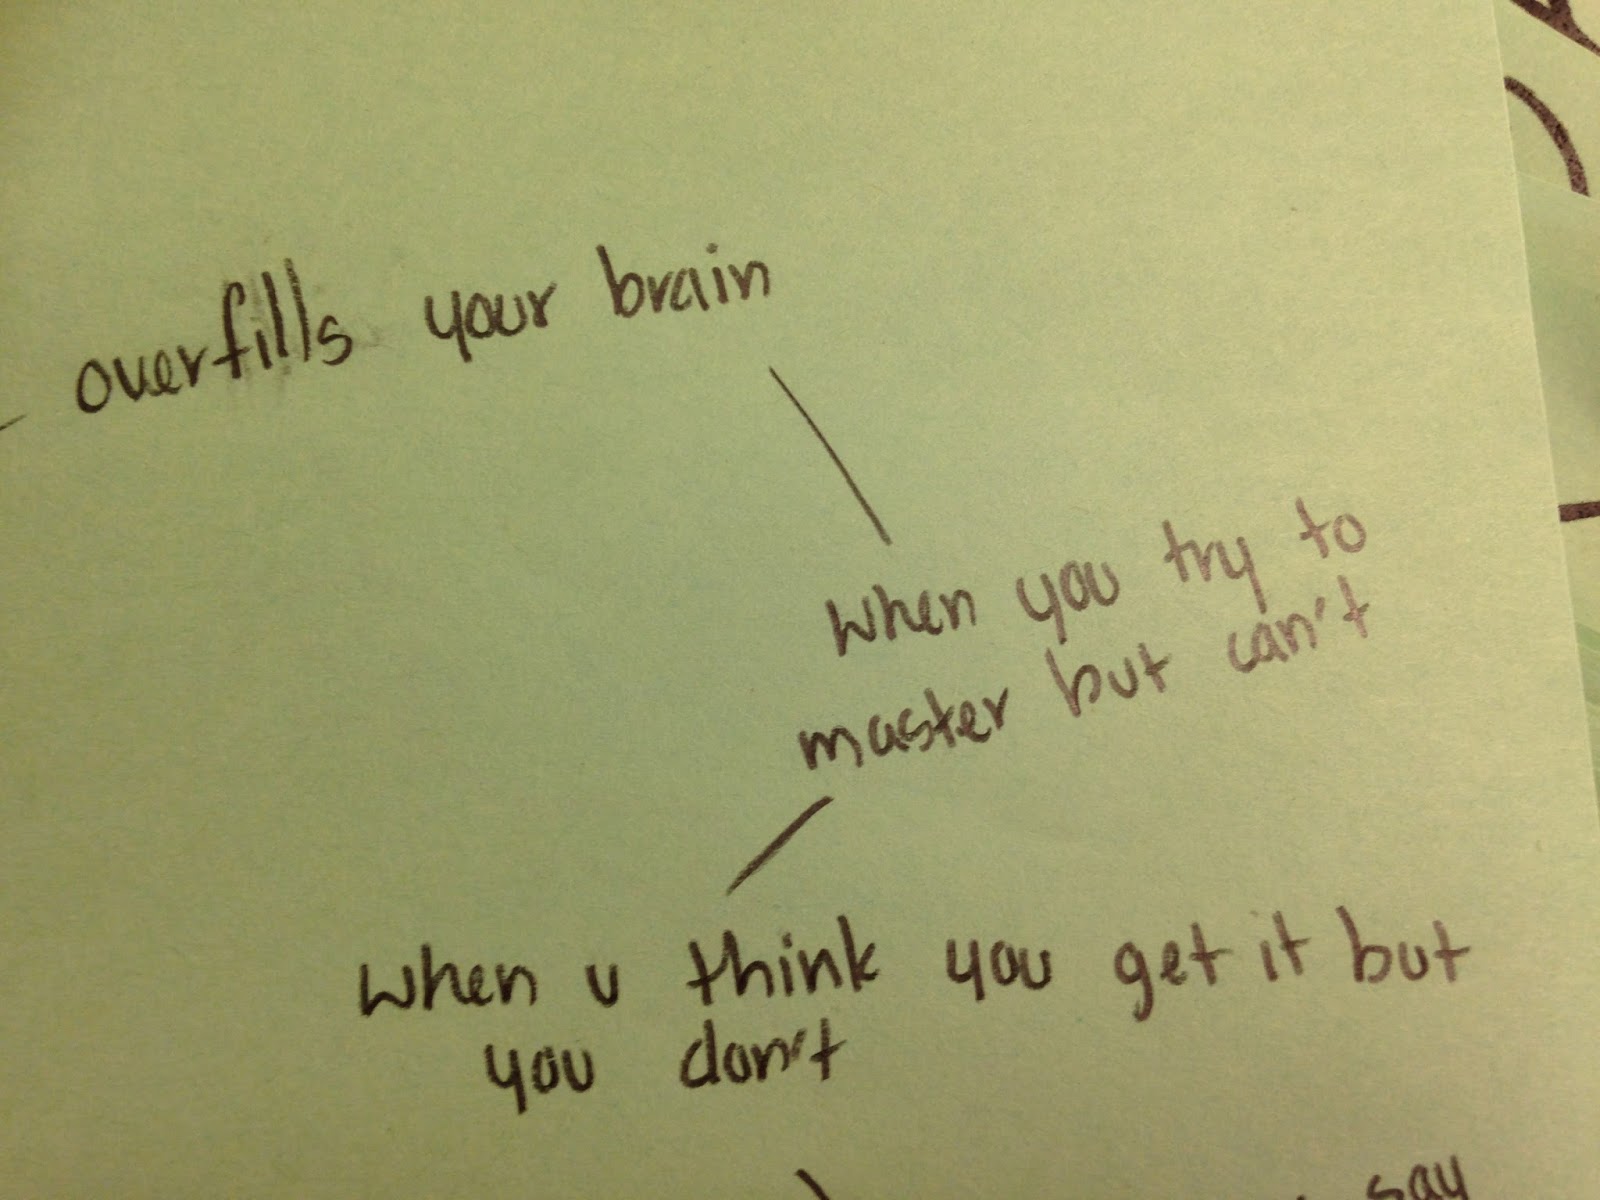 overfills your brain
when you try to
master but can't
when u think you get it but
you don't
say